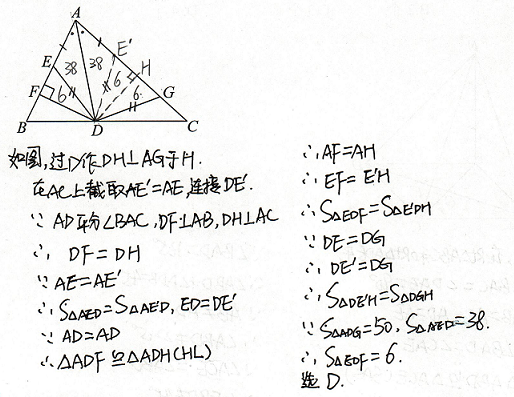 A
E'
E
38
38
6
H
F
6
6
G
B
D
C
如图,过D作DH⊥AG于H.
在AC上截取AE'=AE,连接DE'.
∵ AD平分∠BAC,DF⊥AB,DH⊥AC
∴ DF=DH
∵ AE=AE'
∴ S△AED=S△AE'D, ED=DE'
∵ AD=AD
∴ △ADF≌△ADH(HL)
∴ AF=AH
∴ EF=E'H
∴ S△EDF=S△E'DH
∵ DE=DG
∴ DE'=DG
∴ S△DE'H=S△DGH
∵ S△ADG=50, S△AED=38.
∴ S△EDF=6.
选D.